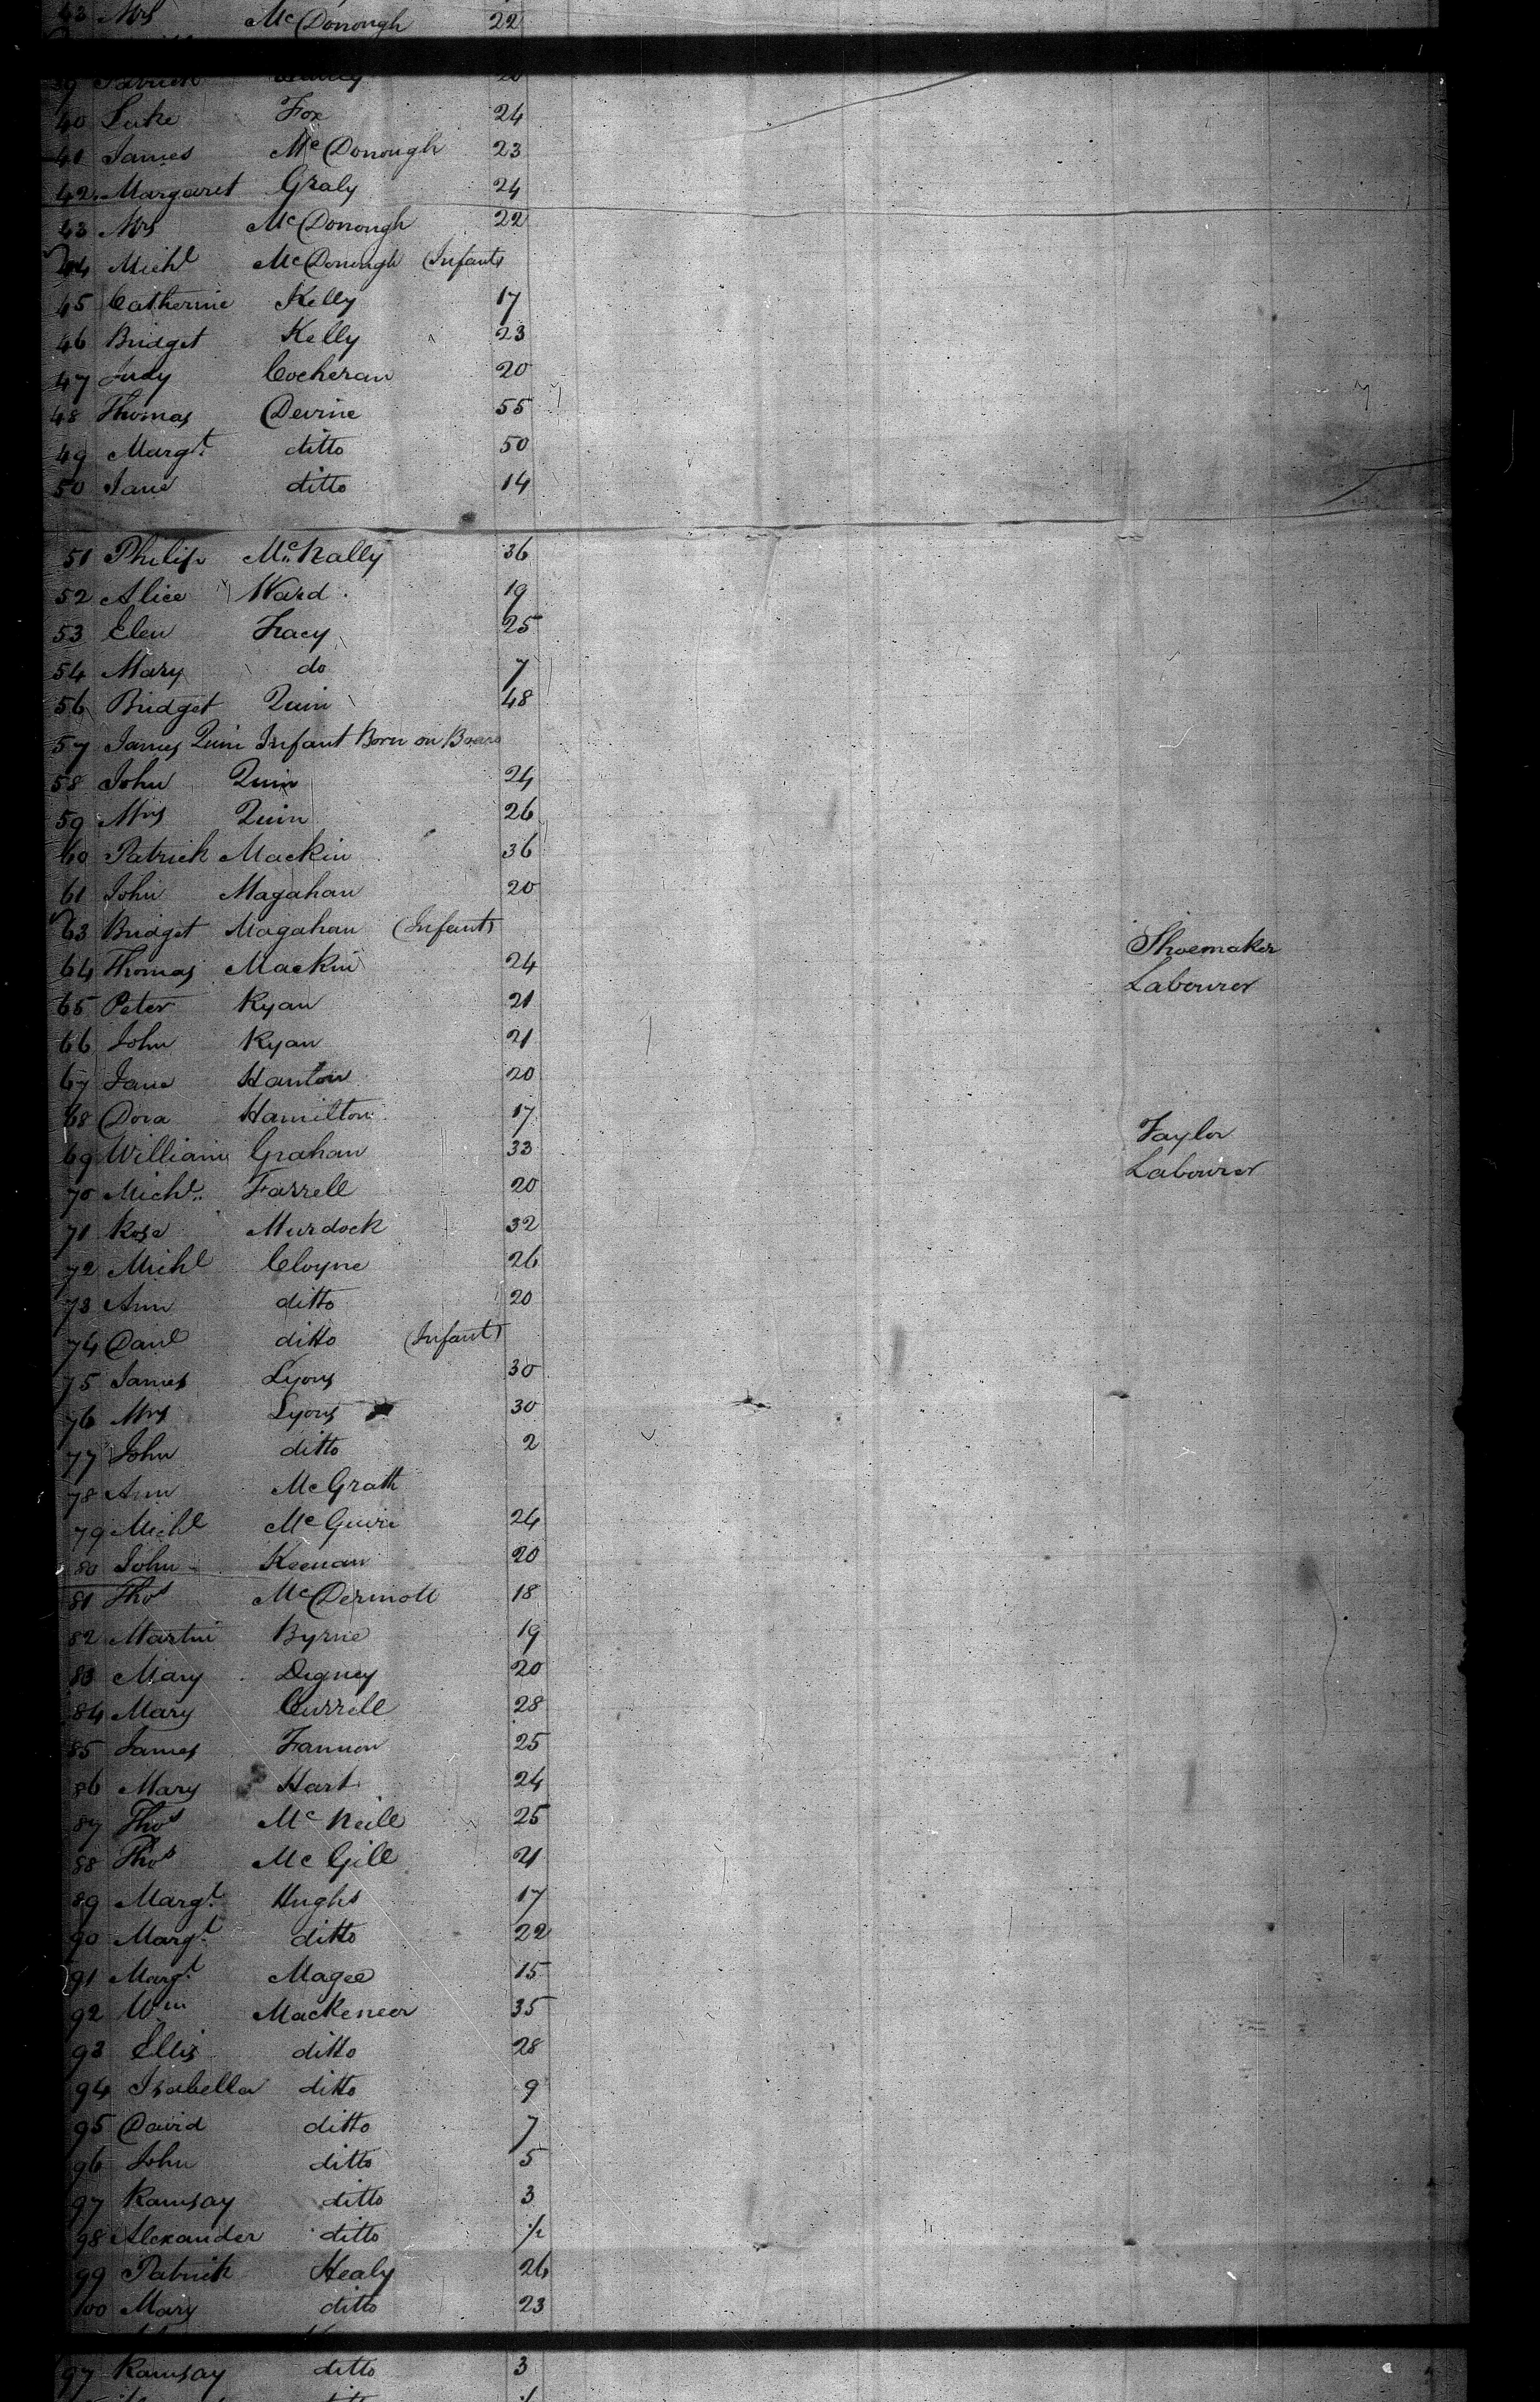 43 Mrs McDonough 22
39 Patrick
40 Luke Fox 24
41 James McDonough 23
42 Margaret Graly 24
43 Mrs McDonough 22
44 Michl McDonough (Infant)
45 Catherine Kelly 17
46 Bridget Kelly 23
47 Judy Cocheran 20
48 Thomas Devine 55
49 Margt. ditto 50
50 Jane ditto 14
51 Philip McNally 36
52 Alice Ward 19
53 Elen Tracy 25
54 Mary do 7
56 Bridget Quin 48
57 James Quin Infant Born on Board
58 John Quin 24
59 Mrs Quin 26
60 Patrick Mackin 36
61 John Magahan 20
63 Bridget Magahan (Infant)
64 Thomas Mackin 24 Shoemaker
65 Peter Ryan 21 Labourer
66 John Ryan 21
67 Jane Hanton 20
68 Dora Hamilton 17
69 William Grahan 33 Taylor
70 Michl. Farrell 20 Labourer
71 Rose Murdock 32
72 Michl Cloyne 26
73 Ann ditto 20
74 Danl ditto (Infant)
75 James Lyons 30
76 Mrs Lyons 30
77 John ditto 2
78 Ann McGrath
79 Michl McGuire 24
80 John Keenan 20
81 Thos McDermott 18
82 Martin Byrne 19
83 Mary Digney 20
84 Mary Currell 28
85 James Fannon 25
86 Mary Hart 24
87 Thos McNeill 25
88 Thos McGill 21
89 Margt. Hughs 17
90 Margt. ditto 22
91 Margt. Magee 15
92 Wm Mackeneer 35
93 Ellis ditto 28
94 Isabella ditto 9
95 David ditto 7
96 John ditto 5
97 Ramsay ditto 3
98 Alexander ditto ½
99 Patrick Healy 26
100 Mary ditto 23
97 Ramsay ditto 3